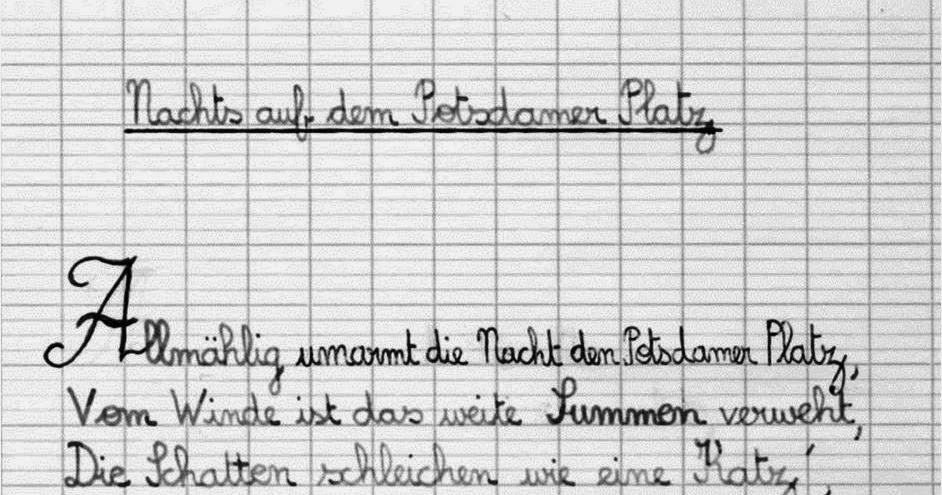 Nachts auf dem Potsdamer Platz
Allmählig umarmt die Nacht den Potsdamer Platz,
Vom Winde ist das weite Summen verweht,
Die Schatten schleichen wie eine Katz',